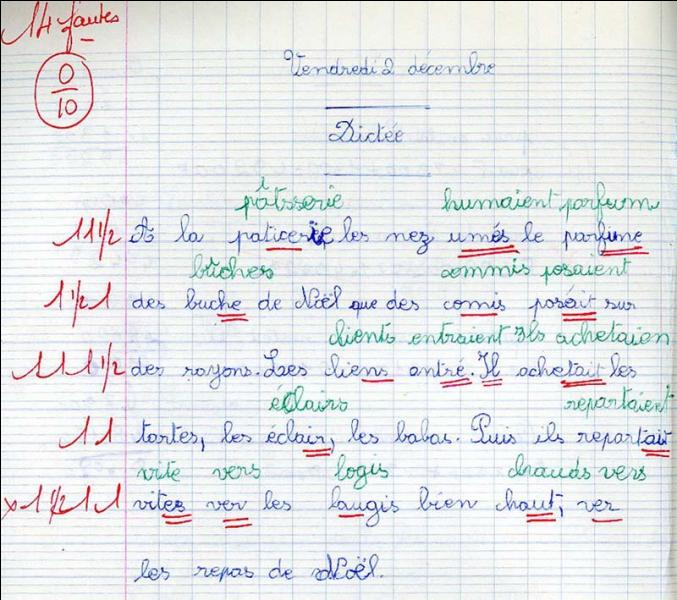 14 fautes
0
10
Vendredi 2 décembre
Dictée
pâtsserie humaient parfum
1 1 1/2 A la paticerie les nez umés le parfune
bûches commis posaient
1 1/2 1 des buche de Noël que des comis poséait sur
clients entraient Ils achetaien
1 1 1 1/2 des rayons. Les cliens antré. Il achetait les
éclairs repartaient
1 1 tortes, les éclair, les babas. Puis ils repartait
vite vers logis chauds vers
x 1 1/2 1 1 vites ver les laugis bien chaut, ver
les repas de Noël.